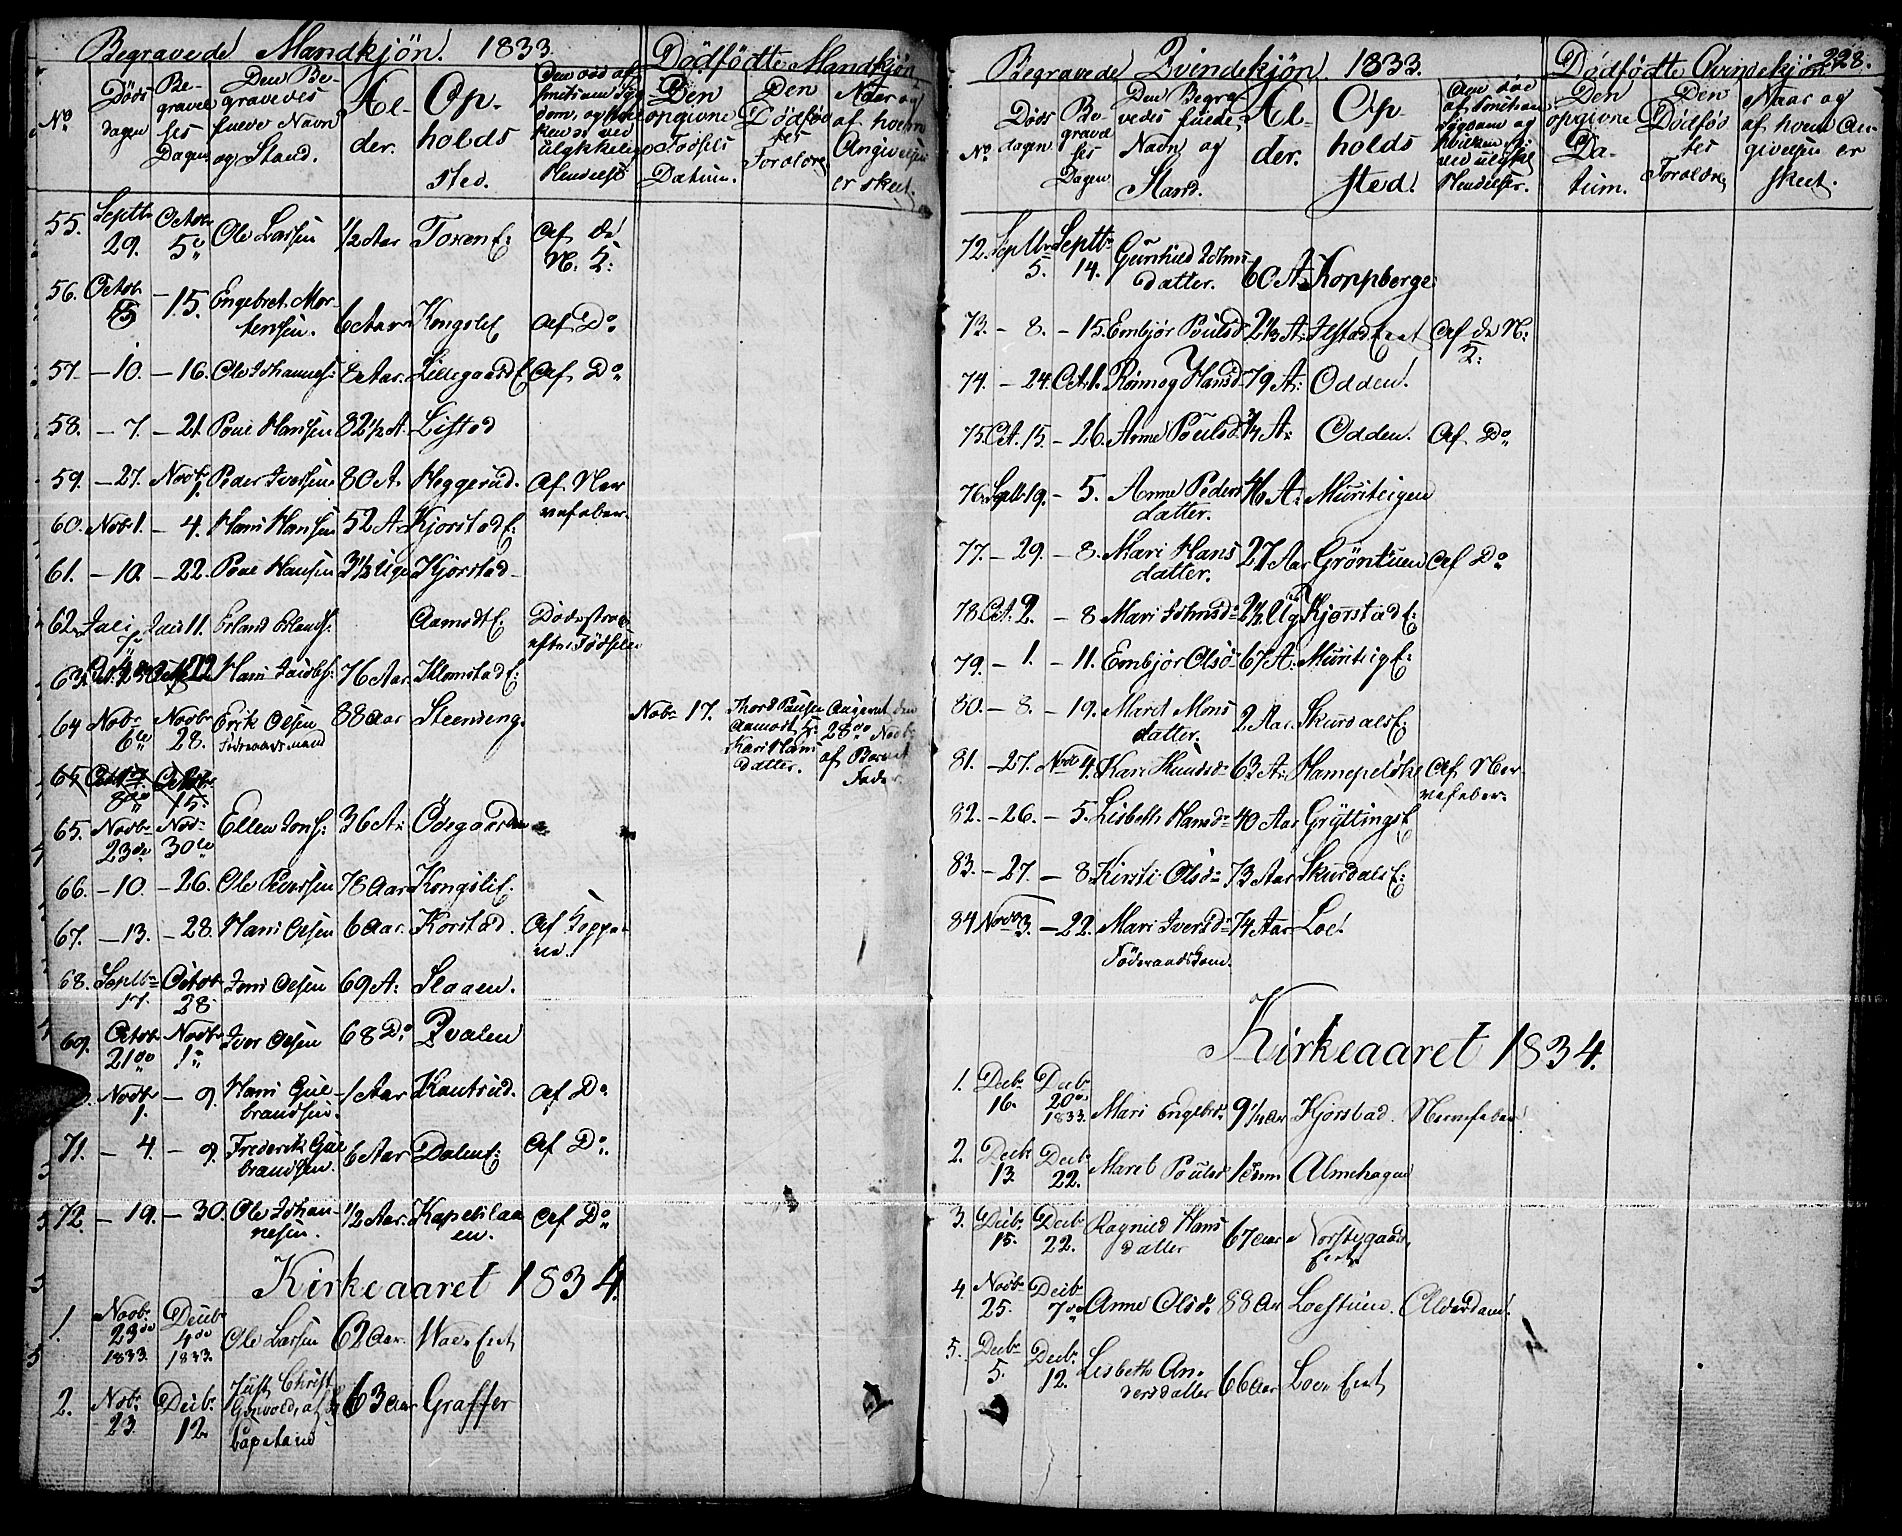 Begravede Mandkjön. 1833.
Dödfödte Mandkjön
No
Döds dagen
Be-gravel ses Dagen
Den Be-gravedes fulde Navn og Stand.
Al-der.
Op-holds sted.
Den opgivne Födsels Datum.
Den Dödföd tes Forældre
Naar og af hvem Angivelsen er skeet.
55. Septbr 29. Octobr 5te Ole Larsen 1/2 Aar Toxen E: Af de N. K:
56. Octob 15. Engebret Mor-tensen. 6 Aar Kongslie Af Do
57. - 10. - 16. Ole Johannes: 8 Aar. Lillegaard E Af Do
58. - 7. - 21. Poul Hansen 82 1/2 A. Listad
59. - 27. Novbr 1. Peder Iversen 80 A. Heggerud. Af Ner vefeber.
60. Nob 1. - 4. Hans Hansen 52 A. Kjorstad E:
61. - 10. - 22. Poul Hansen 3 1/2 Uge Kjorstad
62. Juli Juli 11. Erland Erlands: Aamodt E: Döde strax efter Födselen
63. Hans Jacobs: 76 Aar. Klomstad E:
64 Nobr 6te Novbr 28. Erik Olsen Föderaadsmand 88 Aar Steenseng.
Nobr 17. Thord Poulsen Aamodt E: Kari Hans datter. Angivet den 28de Novbr af Barnets Fader
65. Octbr 8de Octobr 15.
65. Novbr 23de Nov 30te Ellev Jons: 36 A: Ödegaarden
66. - 10. - 26. Ole Iversen 78 Aar Kongslie E.
67. - 13. - 28. Hans Olsen 6 Aar. Korstad. Af Koppe ne.
68. Septbr 17. Octobr 28. Jens Olsen 69 A: Slaaen.
69. Octobr 21de Novbr 1te Iver Olsen 68 Do Qvalen
Novbr 1. - 9. Hans Gul-brandsen. 1 Aar Rautrud. Af Do
71. - 4. - 9. Frederik Gul brandsen 6 Aar Dalen E: Af Do
72 - 19. - 30. Ole Johan-nesen. 1/2 Aar. Kapelslaa en. Af Do
Kirkeaaret 1834.
1. Novbr 23de 1833. Decbr 4de 1833. Ole Larsen 62 Aar. Eiet
2. Nobr. 23. Decbr. 12. Just Christ 63 Aar Graffer
Begravede Qvindekjön 1833.
Dödfödte Qvindekjön
228.
No.
Döds dagen
Be-gravel ses Dagen
Den Begra vedes fulde, Navn og Stand.
Al-der.
Op-holds sted.
Den opgivne Da-tum.
Den Dödföd tes Forældre
Naar og af hvem An-givelsen er skeet.
72. Septbr 5. Septbr 14. Gunhild Johns datter. 60 A: Kornberge
73. - 8. - 15. Embjör Poulsd. 2 1/2 A: Ilstad Eiet Af de N: K:
74. - 24. Oct. 1. Rönnog Hansd. 79 A: Odden.
75. Oct. 15 - 26. Anne Poulsd. 1/4 A: Odden. Af Do
76. Septbr 19. - 5. Anne Peders datter. 46 A: Muriteigen
77. - 29. - 8. Mari Hans datter. 27 Aar Gröntuen Af Do
78. Oct. 2. - 8 Mari Johnsd. 2 1/2 Ug. Kjorstad E:
79. - 1. - 11. Embjör Olsd. 67 A: Muriteig E:
80. - 8. - 19. Marit Mons datter. 2 Aar. Skurdals E:
81. - 27. Nov 4. Kari Knudsd. 63 A: Af Ner-vefeber.
82. - 26. - 5. Lisbeth Hansd. 40 Aar Gryttings E
83. - 27. - 8. Kirsti Olsd. 73 Aar Skurdals E:
84 Novbr 3. - 22. Mari Iversd. Föderaadskone. 74 Aar Loe
Kirkeaaret 1834.
1. Decbr 16. Decb 20de 1833. Mari Engebrs. 9 1/4 Aar Kjorstad. Nervefeber
2. Decbr 13 Decbr 22. Marit Poulsd. Almehagen
3. Decbr. 15. Decbr 22. Ragnild Hans datter 67 Aar Eiet
4. Novbr 25. Decbr 7de Anne Olsd. 88 Aar Loestuen. Alderdom.
5. Decbr 5. Decbr. 12. Lisbeth An-dersdatter 66 Aar Loe Eiet